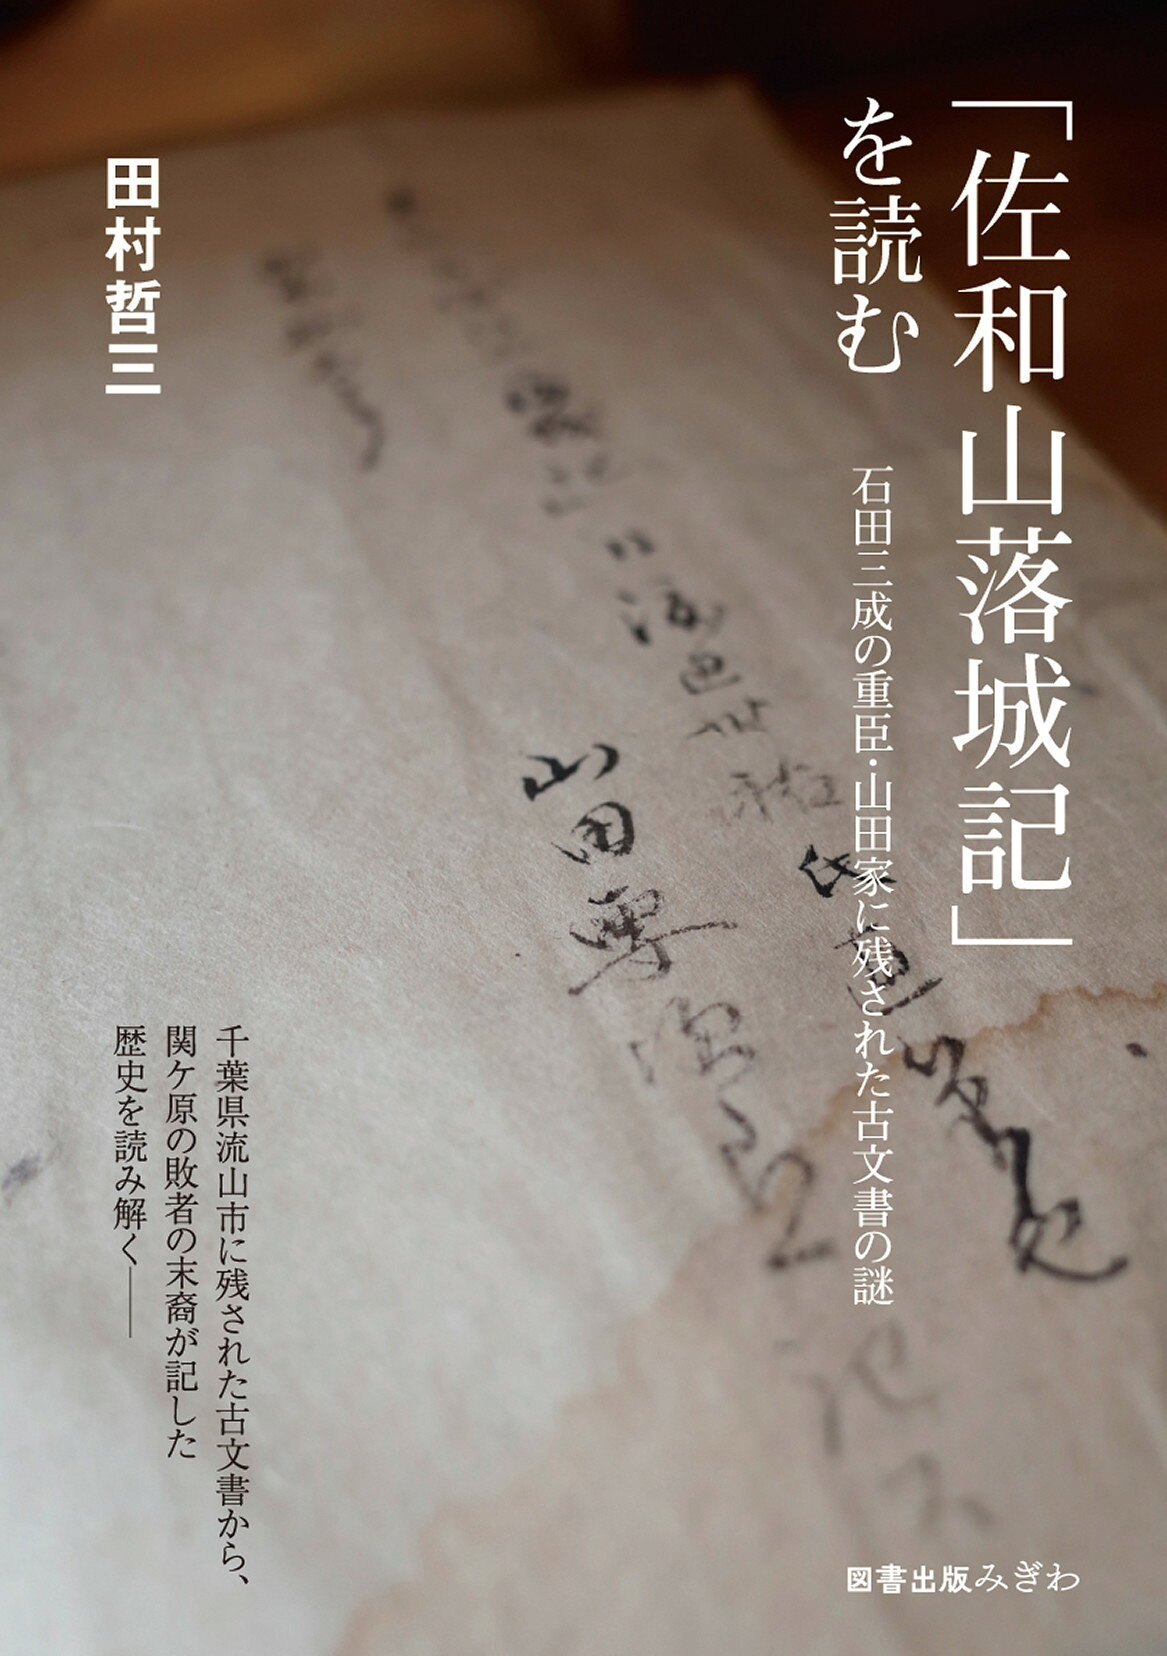 「佐和山落城記」
を読む
石田三成の重臣・山田家に残された古文書の謎
田村哲三
千葉県流山市に残された古文書から、
関ケ原の敗者の末裔が記した
歴史を読み解く――
図書出版みぎわ
山田